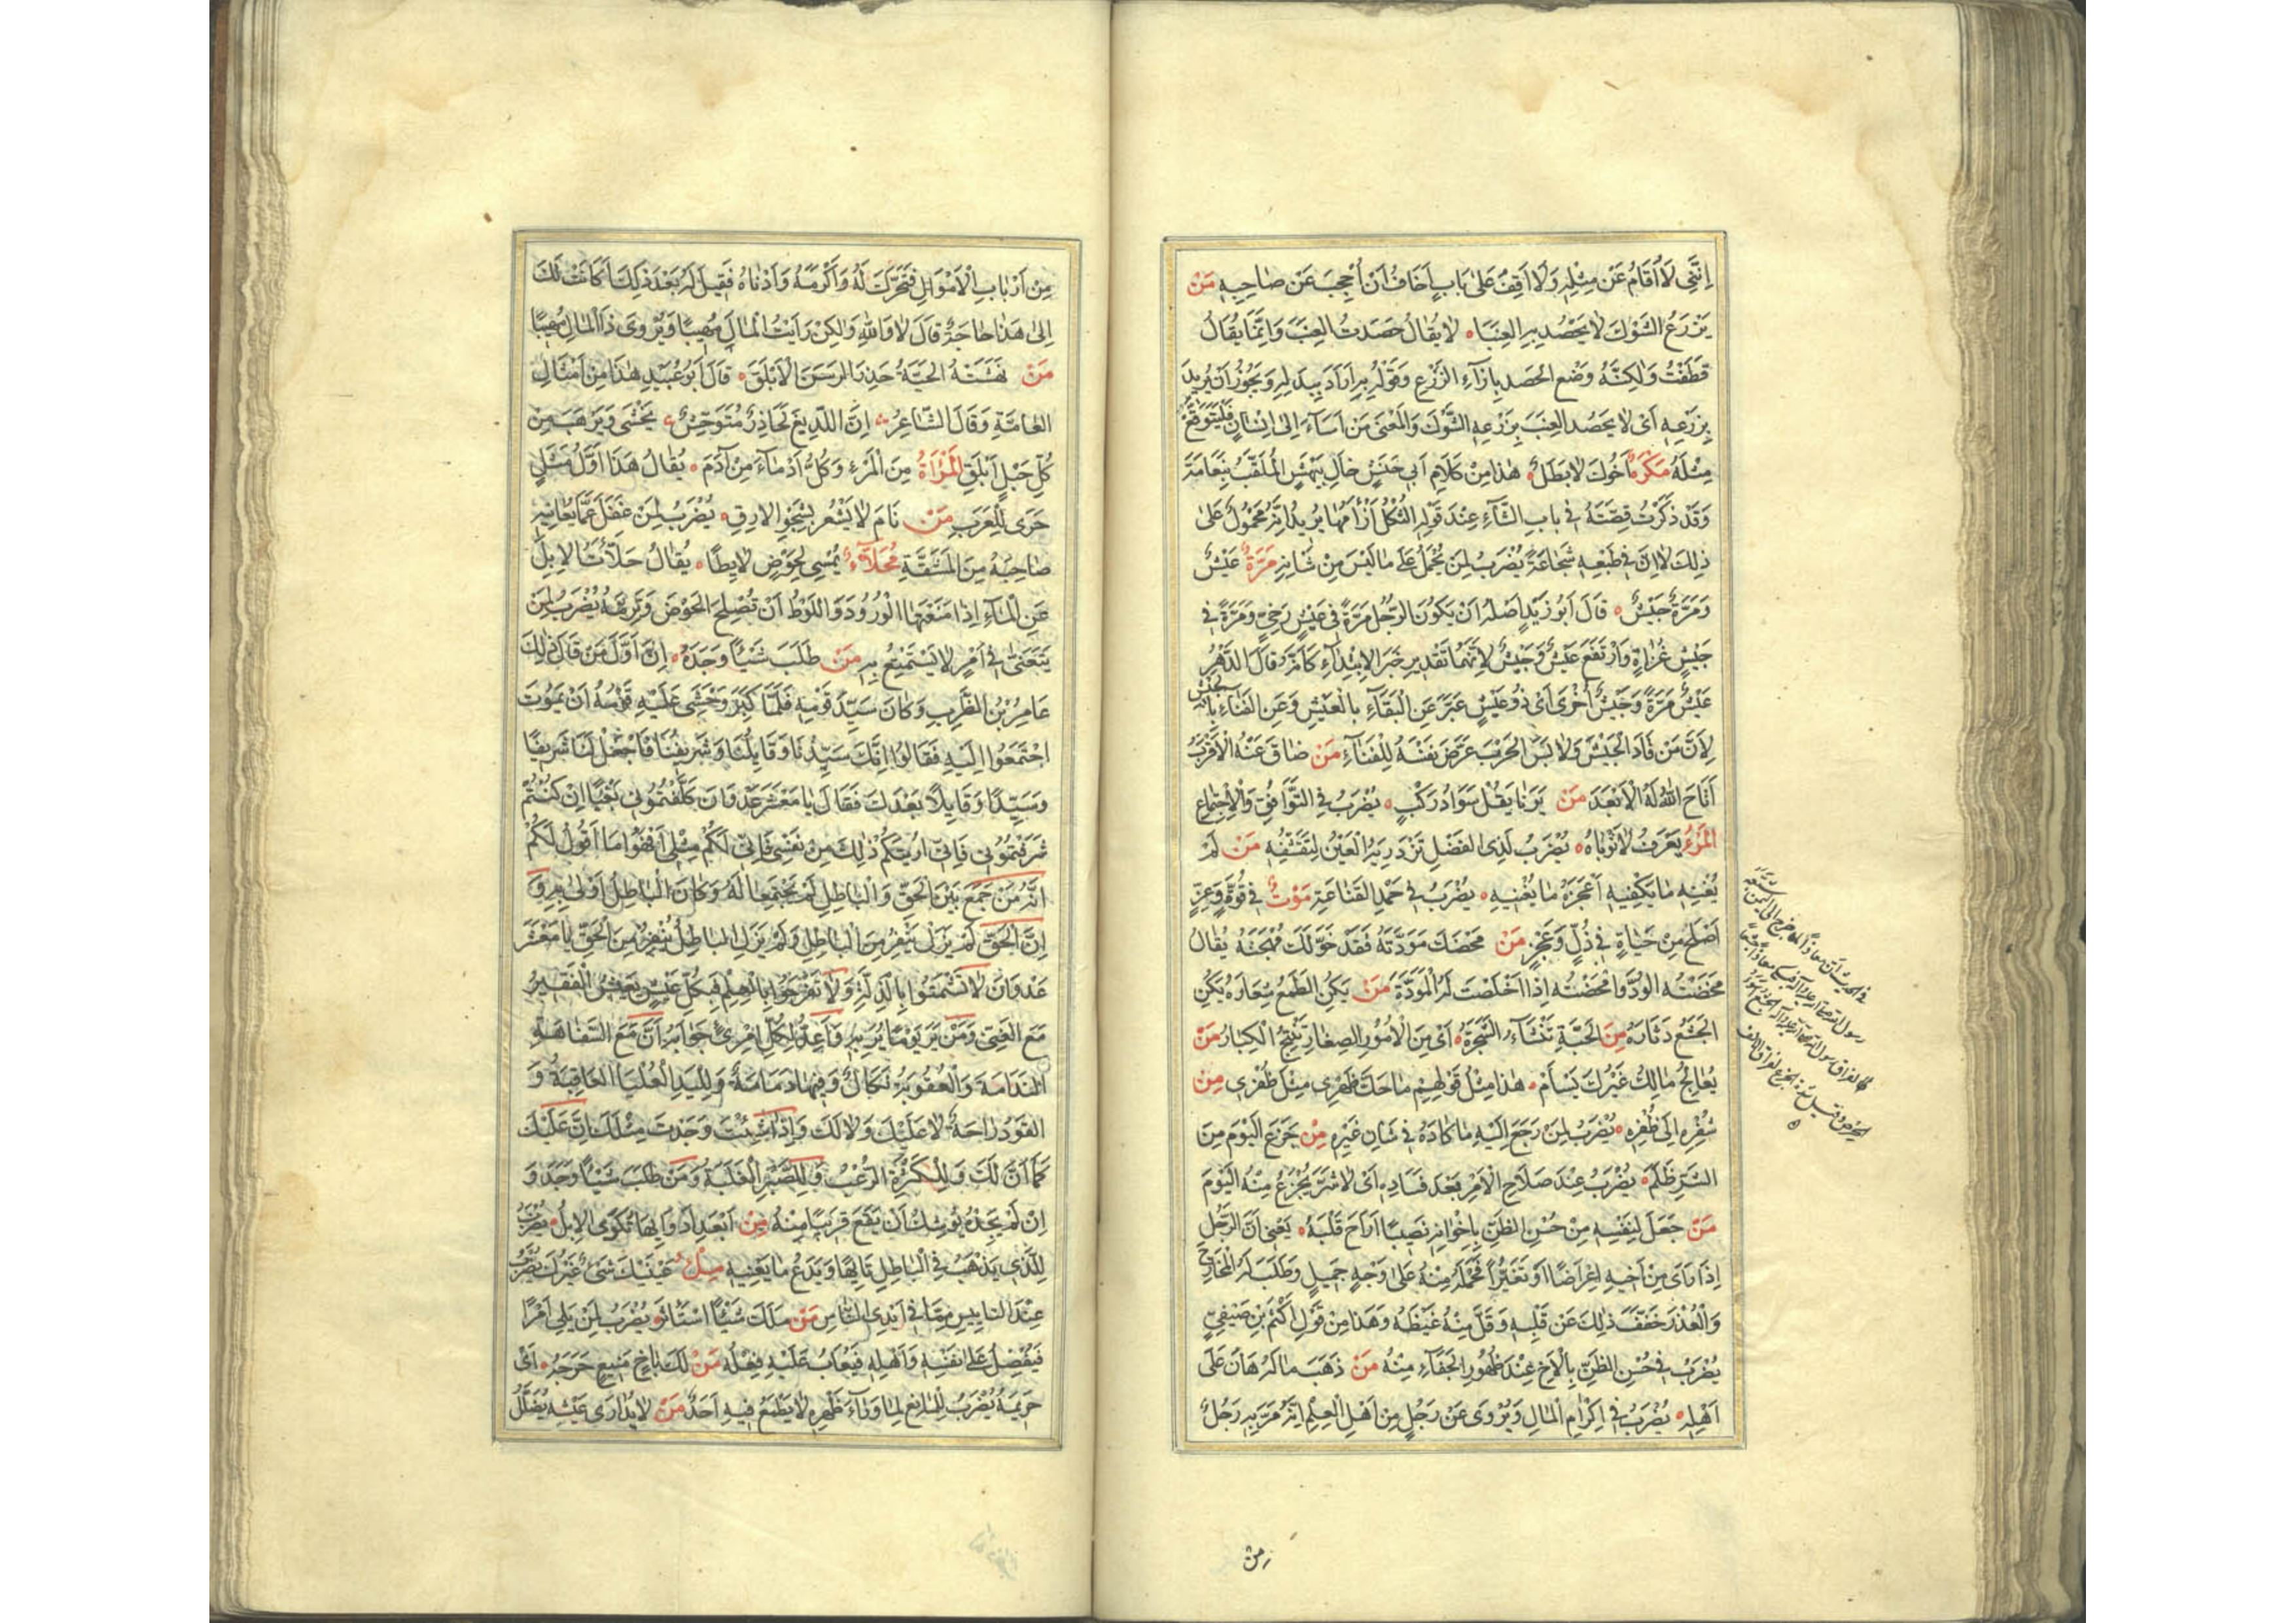 اِنَّنِي لَا اُقَامُ عَنْ مِثْلِهِ وَلَا اَقِفُ عَلَى بَابٍ اَخَافُ اَنْ اُحْجَبَ عَنْ صَاحِبِهِ مَنْ
يَزْرَعِ الشَّوْكَ لَا يَحْصُدْ بِهِ العِنَبَا لَا يُقَالُ حَصَدتُ العِنَبَ وَاِنَّمَا يُقَالُ
قَطَفْتُ وَلٰكِنَّهُ وَضَعَ الحَصدَ بِاِزَآءِ الزَّرْعِ وَقَوْلُهُ بِهِ اَرَادَ بِبَدَلِهِ وَيَجُوزُ اَنْ يُرِيدَ
بِزَرْعِهِ اَىْ لَا يَحصُد العِنَبَ بِزَرْعِهِ الشَّوْكَ وَالْمَعْنَى مَنْ اَسَآءَ اِلَى اِنْسَانٍ فَلْيَتَوَقَّعْ
مِثْلَهُ مُكْرَهٌ اَخُوكَ لَا بَطَلٌ هٰذَا مِنْ كَلَامِ اَبِي حَنَشٍ خَالِ بَيْهَسٍ الْمُلَقَّبِ بِنَعَامَةَ
وَقَد ذَكَرْتُ قِصَّتَهُ فِي بَابِ الثَّآءِ عِنْدَ قَوْلِهِ الثُّكْلُ اَرْأَمَهَا يُرِيدُ اِنَّهُ مَحْمُولٌ عَلَى
ذٰلِكَ لَا اِنَّ فِي طَبْعِهِ شَجَاعَةً يُضْرَبُ لِمَنْ يُحْمَلُ عَلَى مَا لَيْسَ مِنْ شَانِهِ مَرَّةً عَيْشٌ
وَمَرَّةً جَيْشٌ قَالَ اَبُو زَيْدٍ اَصْلُهُ اَنْ يَكُونَ الرَّجُلُ مَرَّةً فِي عَيْشٍ رَخِيٍّ وَمَرَّةً فِي
جَيْشٍ غُزَاةٍ وَارْتَفَعَ عَيْشٌ وَجَيْشٌ لِاَنَّهُمَا تَقْدِيرُ خَبَرِ الاِبْتِدَآءِ كَاَنَّهُ قَالَ الدَّهْرُ
عَيْشٌ مَرَّةً وَجَيْشٌ اُخْرَى اَىْ ذُو عَيْشٍ عَبَّرَ عَنِ الْبَقَآءِ بِالْعَيْشِ وَعَنِ الفَنَآءِ بِالْجَيْشِ
لِاَنَّ مَنْ قَادَ الْجَيْشَ وَلَابَسَ الحَرْبَ عَرَّضَ نَفْسَهُ لِلْفَنَآءِ مَنْ ضَاقَ عَنْهُ الْاَقْرَبُ
اَتَاحَ اللهُ لَهُ الْاَبْعَدَ مَنْ يَرَنَا يَقُلْ سَوَادٌ رَكْبٍ يُضْرَبُ فِي التَّوَافُقِ وَالْاِجْتِمَاعِ
الْمَرْءُ يُعْرَفُ لَا ثَوْبَاهُ يُضْرَبُ لِذِى الفَضْلِ تَزْدَرِيهِ الْعَيْنُ لِتَقَشُّفِهِ مَنْ لَمْ
يُغْنِهِ مَا يَكْفِيهِ اَعْجَزَهُ مَا يُغْنِيهِ يُضْرَبُ فِي حَمْدِ القَنَاعَةِ مَوْتٌ فِي قُوَّةٍ وَعِزٍّ
اَصْلَحُ مِنْ حَيَاةٍ فِي ذُلٍّ وَعَجْزٍ مَنْ مَحَضَكَ مَوَدَّتَهُ فَقَدْ خَوَّلَكَ مُهْجَتَهُ يُقَالُ
مَحَضْتُهُ الوُدَّ وَاَمْحَضْتُهُ اِذَا اَخْلَصْتَ لَهُ الْمَوَدَّةَ مَنْ يَكُنِ الطَّمَعُ شِعَارَهُ يَكُنِ
الجَشَعُ دِثَارَهُ مِنَ الحَبَّةِ تَنْشَأُ الشَّجَرَةُ اَىْ مِنَ الْاُمُورِ الصِّغَارِ تَنْتِجُ الْكِبَارُ مَنْ
يُعَالِجْ مَالَكَ غَيْرُكَ يَسْأَمْ هٰذَا مِثْلُ قَوْلِهِمْ مَا حَكَّ ظَهْرِى مِثْلُ ظُفْرِى مِنْ
شُفْرِهِ اِلَى ظُفْرِهِ يُضْرَبُ لِمَنْ رَجَعَ اِلَيْهِ مَا كَادَهُ فِي شَانِ غَيْرِهِ مَنْ جَزِعَ الْيَوْمَ مِنَ
الشَّرِّ ظَلَمَ يُضْرَبُ عِنْدَ صَلَاحِ الْاَمْرِ بَعْدَ فَسَادِهِ اَىْ لَا شَرَّ يُجْزَعُ مِنْهُ الْيَوْمَ
مَنْ جَعَلَ لِنَفْسِهِ مِنْ حُسْنِ الظَّنِّ بِاِخْوَانِهِ نَصِيبًا اَرَاحَ قَلْبَهُ يَعْنِى اَنَّ الرَّجُلَ
اِذَا رَاَى مِنْ اَخِيهِ اِعْرَاضًا اَوْ تَغَيُّرًا فَحَمَلَهُ مِنْهُ عَلَى وَجْهٍ جَمِيلٍ وَطَلَبَ لَهُ الْمَخَارِجَ
وَالْعُذْرَ خَفَّفَ ذٰلِكَ عَنْ قَلْبِهِ وَقَلَّ مِنْهُ غَيْظُهُ وَهَذَا مِنْ قَوْلِ اَكْثَمَ بْنِ صَيْفِيٍّ
يُضْرَبُ فِي حُسْنِ الظَّنِّ بِالْاَخِ عِنْدَ ظُهُورِ الجَفَآءِ مِنْهُ مَنْ ذَهَبَ مَالُهُ هَانَ عَلَى
اَهْلِهِ يُضْرَبُ فِي اِكْرَامِ الْمَالِ وَيُرْوَى عَنْ رَجُلٍ مِنْ اَهْلِ الْعِلْمِ اِنَّهُ مَرَّ بِهِ رَجُلٌ
مِنْ
مِنْ اَرْبَابِ الْاَمْوَالِ فَتَحَرَّكَ لَهُ وَاَكْرَمَهُ وَاَدْنَاهُ فَقِيلَ لَهُ بَعْدَ ذٰلِكَ اَكَانَتْ لَكَ
اِلَى هَذَا حَاجَةٌ قَالَ لَا وَاللهِ وَلٰكِنْ رَاَيْتُ الْمَالَ مَهِيبًا وَيُرْوَى ذَا الْمَالِ مَهِيبًا
مَنْ نَهَشَتْهُ الحَيَّةُ حَذِرَ الرَّسَنَ الْاَبْلَقَ قَالَ اَبُو عُبَيْدٍ هٰذَا مِنْ اَمْثَالِ
العَامَّةِ وَقَالَ الشَّاعِرُ اِنَّ اللَّدِيغَ لَحَاذِرٌ مُتَوَحِّشٌ يَخْشَى وَيَرْهَبُ مِنْ
كُلِّ حَبْلٍ اَبْلَقِ الْمَرْاَةُ مِنَ الْمَرْءِ وَكُلُّ اَدْمَآءَ مِنْ آدَمَ يُقَالُ هَذَا اَوَّلُ مَثَلٍ
جَرَى لِلْعَرَبِ مَنْ نَامَ لَا يَشْعُرُ بِشَجْوِ الْارِقِ يُضْرَبُ لِمَنْ غَفَلَ عَمَّا يُعَانِيهِ
صَاحِبُهُ مِنَ الْمَشَقَّةِ مُحَلَّأٌ يُمْسِى لِحَوْضٍ لَايِطًا يُقَالُ حَلَّأْتُ الْاِبِلَ
عَنِ الْمَآءِ اِذَا مَنَعْتَهَا الْوُرُودَ وَاللَّوْطُ اَنْ تُصْلِحَ الحَوْضَ وَتَرُمَّهُ يُضْرَبُ لِمَنْ
يَتَعَنَّى فِي اَمْرٍ لَا يَسْتَمْتِعُ بِهِ مَنْ طَلَبَ شَيْئًا وَجَدَهُ اِنَّ اَوَّلَ مَنْ قَالَ ذٰلِكَ
عَامِرُ بْنُ الظَّرِبِ وَكَانَ سَيِّدَ قَوْمِهِ فَلَمَّا كَبِرَ وَخَشِىَ عَلَيْهِ قَوْمُهُ اَنْ يَمُوتَ
اجْتَمَعُوا اِلَيْهِ فَقَالُوا اِنَّكَ سَيِّدُنَا وَقَايِلُنَا وَشَرِيفُنَا فَاجْعَلْ لَنَا شَرِيفًا
وَسَيِّدًا وَقَايِلًا بَعْدَكَ فَقَالَ يَا مَعْشَرَ عَدْوَانَ كَلَّفْتُمُونِي بَغْيًا اِنْ كُنْتُمْ
شَرَّفْتُمُونِي فَاِنِّي اُرِيتُكُمْ ذٰلِكَ مِنْ نَفْسِي فَاَنَّى لَكُمْ مِثْلِي اَفْهَمُوا مَا اَقُولُ لَكُمْ
اِنَّهُ مَنْ جَمَعَ بَيْنَ الحَقِّ وَالْبَاطِلِ لَمْ يَجْتَمِعَا لَهُ وَكَانَ الْبَاطِلُ اَوْلَى بِهِ وَ
اِنَّ الْحَقَّ لَمْ يَزَلْ يَنْفِرُ مِنَ الْبَاطِلِ وَلَمْ يَزَلِ الْبَاطِلُ يَنْفِرُ مِنَ الْحَقِّ يَا مَعْشَرَ
عَدْوَانَ لَا تَشْمَتُوا بِالذِّلَّةِ وَلَا تَفْرَحُوا بِالْعِزِّ فَبِكُلِّ عَيْشٍ يَعِيشُ الْفَقِيرُ
مَعَ الغَنِيِّ وَمَنْ يَرَ يَوْمًا يُرَ بِهِ وَاَعِدُّوا لِكُلِّ امْرِئٍ جَوَابَهُ اِنَّ مَعَ السَّفَاهَةِ
النَّدَامَةَ وَالْعُقُوبَةُ نَكَالٌ وَفِيهَا دَمَامَةٌ وَلِلْيَدِ الْعُلْيَا العَاقِبَةُ وَ
القَوَدُ رَاحَةٌ لَا عَلَيْكَ وَلَا لَكَ وَاِذَا شِئْتَ وَجَدْتَ مِثْلَكَ اِنَّ عَلَيْكَ
كَمَا اَنَّ لَكَ وَلِلْكَثْرَةِ الرُّعْبُ وَلِلصَّبْرِ الْغَلَبَةُ وَمَنْ طَلَبَ شَيْئًا وَجَدَهُ وَ
اِنْ لَمْ يَجِدْهُ يُوشِكْ اَنْ يَقَعَ قَرِيبًا مِنْهُ مِنْ اَبْعَدِ اَدْوَائِهَا تُكْوَى الْاِبِلُ يُضْرَبُ
لِلَّذِي يَذْهَبُ فِي الْبَاطِلِ تَائِهًا وَيَدَعُ مَا يَعْنِيهِ مِلْءُ عَيْنَيْكَ شَىْءٌ غَيْرُكَ يُضْرَبُ
عِنْدَ الْيَأْسِ مِمَّا فِي اَيْدِى النَّاسِ مَنْ مَلَكَ شَيْئًا اسْتَأْثَرَ يُضْرَبُ لِمَنْ يَلِى اَمْرًا
فَيُفْضِلُ عَلَى نَفْسِهِ وَاَهْلِهِ فَيُعَابُ عَلَيْهِ فِعْلُهُ مَنْ لَكَ بِاَخٍ مَنِيعٍ حَرَجُهُ اَىْ
حَرِيمُهُ يُضْرَبُ لِلْمَانِعِ لِمَا وَرَآءَ ظَهْرِهِ لَا يَطْمَعُ فِيهِ اَحَدٌ مَنْ لَا يُدَارِى عَيْشَهُ يُضَلَّلْ